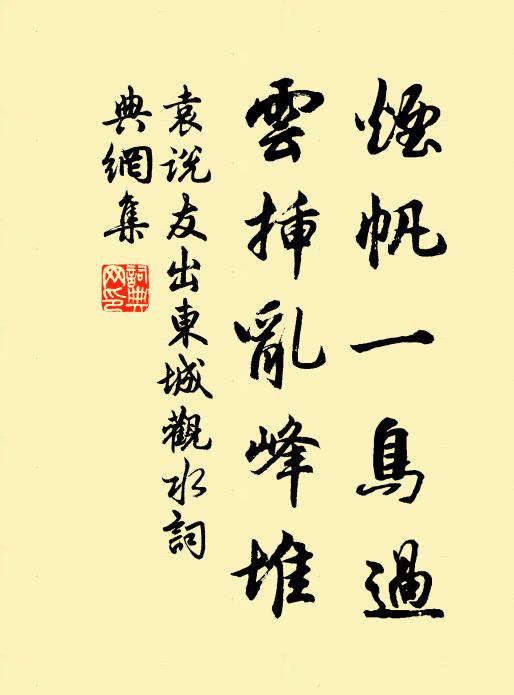 煙帆一鳥過
雲插亂峰堆
袁説友出東城觀水詞
典網集
詞典網印